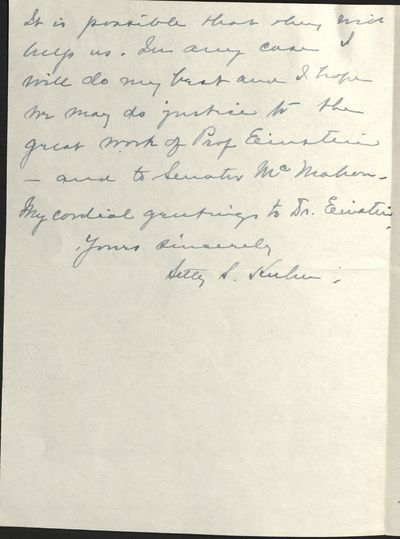 It is possible that they will
help us. In any case I
will do my best and I hope
we may do justice to the
great work of Prof Einstein
– and to Senator Mc Mahon.
My cordial greetings to Dr. Einstein.
Yours sincerely
Setty S. Kuhn.